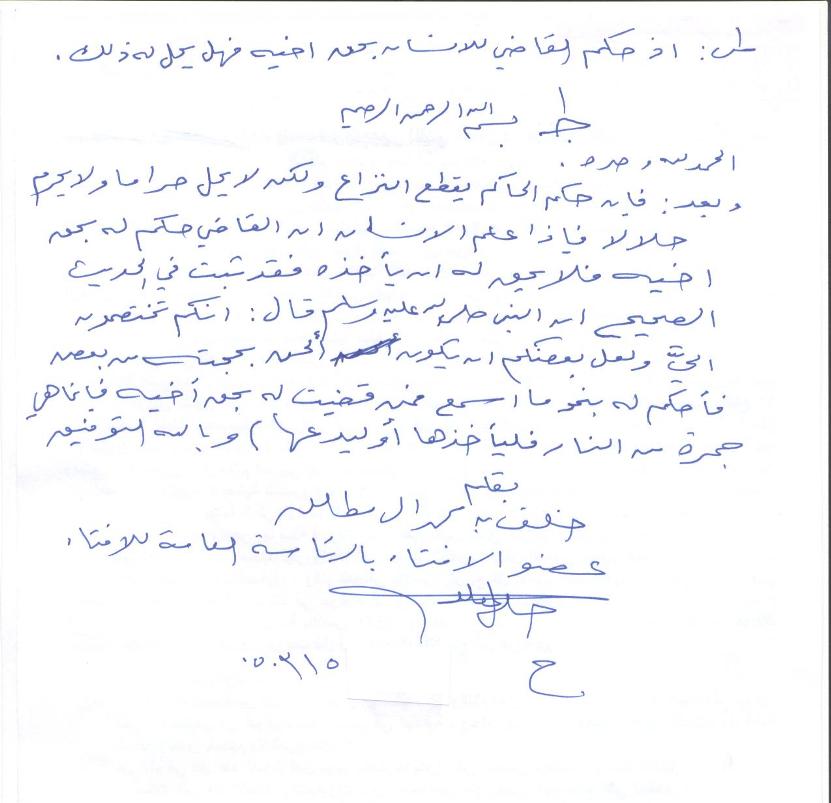 س: اذ حكم القاضي للانسان بحق اخيه فهل يحل له ذلك .
جـ بسم الله الرحمن الرحيم
الحمد لله وحده .
وبعد : فإن حكم الحاكم يقطع النزاع ولكن لا يحل حراما ولا يحرم
حلالا فإذا علم الانسان ان القاضي حكم له بحق
اخيه فلا يحق له ان يأخذه فقد ثبت في الحديث
الصحيح ان النبي صلى الله عليه وسلم قال : انكم تختصمون
اليَّ ولعل بعضكم ان يكون ألحن بحجته من بعض
فأحكم له بنحو ما اسمع فمن قضيت له بحق أخيه فإنما هي
جمرة من النار فليأخذها أو ليدعها ) وبالله التوفيق
بقلم
خلف بن محمد ال مطلق
عضو الافتاء بالرئاسة العامة للافتاء
ح